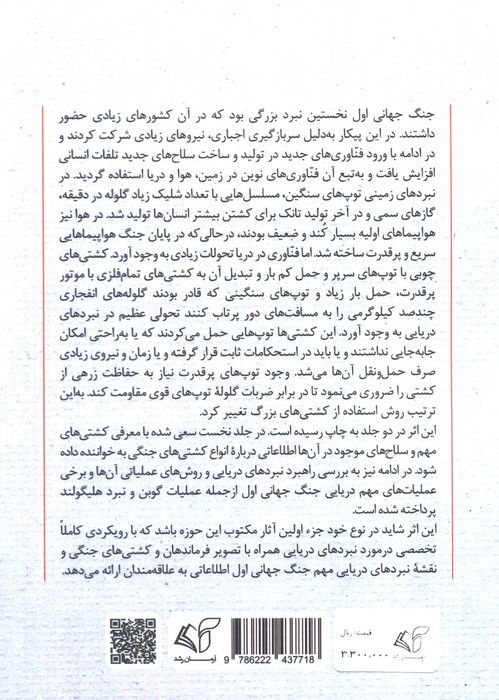 جنگ جهانی اول نخستین نبرد بزرگی بود که در آن کشورهای زیادی حضور
داشتند. در این پیکار به‌دلیل سربازگیری اجباری، نیروهای زیادی شرکت کردند و
در ادامه با ورود فنّاوری‌های جدید در تولید و ساخت سلاح‌های جدید تلفات انسانی
افزایش یافت و به‌تبع آن فنّاوری‌های نوین در زمین، هوا و دریا استفاده گردید. در
نبردهای زمینی توپ‌های سنگین، مسلسل‌هایی با تعداد شلیک زیاد گلوله در دقیقه،
گازهای سمی و در آخر تولید تانک برای کشتن بیشتر انسان‌ها تولید شد. در هوا نیز
هواپیماهای اولیه بسیار کُند و ضعیف بودند، درحالی‌که در پایان جنگ هواپیماهایی
سریع و پرقدرت ساخته شد. اما فنّاوری در دریا تحولات زیادی به وجود آورد. کشتی‌های
چوبی با توپ‌های سرپر و حمل کم بار و تبدیل آن به کشتی‌های تمام‌فلزی با موتور
پرقدرت، حمل بار زیاد و توپ‌های سنگینی که قادر بودند گلوله‌های انفجاری
چندصد کیلوگرمی را به مسافت‌های دور پرتاب کنند تحولی عظیم در نبردهای
دریایی به وجود آورد. این کشتی‌ها توپ‌هایی حمل می‌کردند که یا به‌راحتی امکان
جابه‌جایی نداشتند و یا باید در استحکامات ثابت قرار گرفته و یا زمان و نیروی زیادی
صرف حمل‌ونقل آن‌ها می‌شد. وجود توپ‌های پرقدرت نیاز به حفاظت زرهی از
کشتی را ضروری می‌نمود تا در برابر ضربات گلولهٔ توپ‌های قوی مقاومت کند. به‌این
ترتیب روش استفاده از کشتی‌های بزرگ تغییر کرد.
این اثر در دو جلد به چاپ رسیده است. در جلد نخست سعی شده با معرفی کشتی‌های
مهم و سلاح‌های موجود در آن‌ها اطلاعاتی دربارهٔ انواع کشتی‌های جنگی به خواننده داده
شود. در ادامه نیز به بررسی راهبرد نبردهای دریایی و روش‌های عملیاتی آن‌ها و برخی
عملیات‌های مهم دریایی جنگ جهانی اول ازجمله عملیات گوبن و نبرد هلیگولند
پرداخته شده است.
این اثر شاید در نوع خود جزء اولین آثار مکتوب این حوزه باشد که با رویکردی کاملاً
تخصصی درمورد نبردهای دریایی همراه با تصویر فرماندهان و کشتی‌های جنگی و
نقشهٔ نبردهای دریایی مهم جنگ جهانی اول اطلاعاتی به علاقه‌مندان ارائه می‌دهد.
آرمان رشد
9 786222 437718
قیمت: ریال
۳.۳۰۰.۰۰۰
آرمان رشد